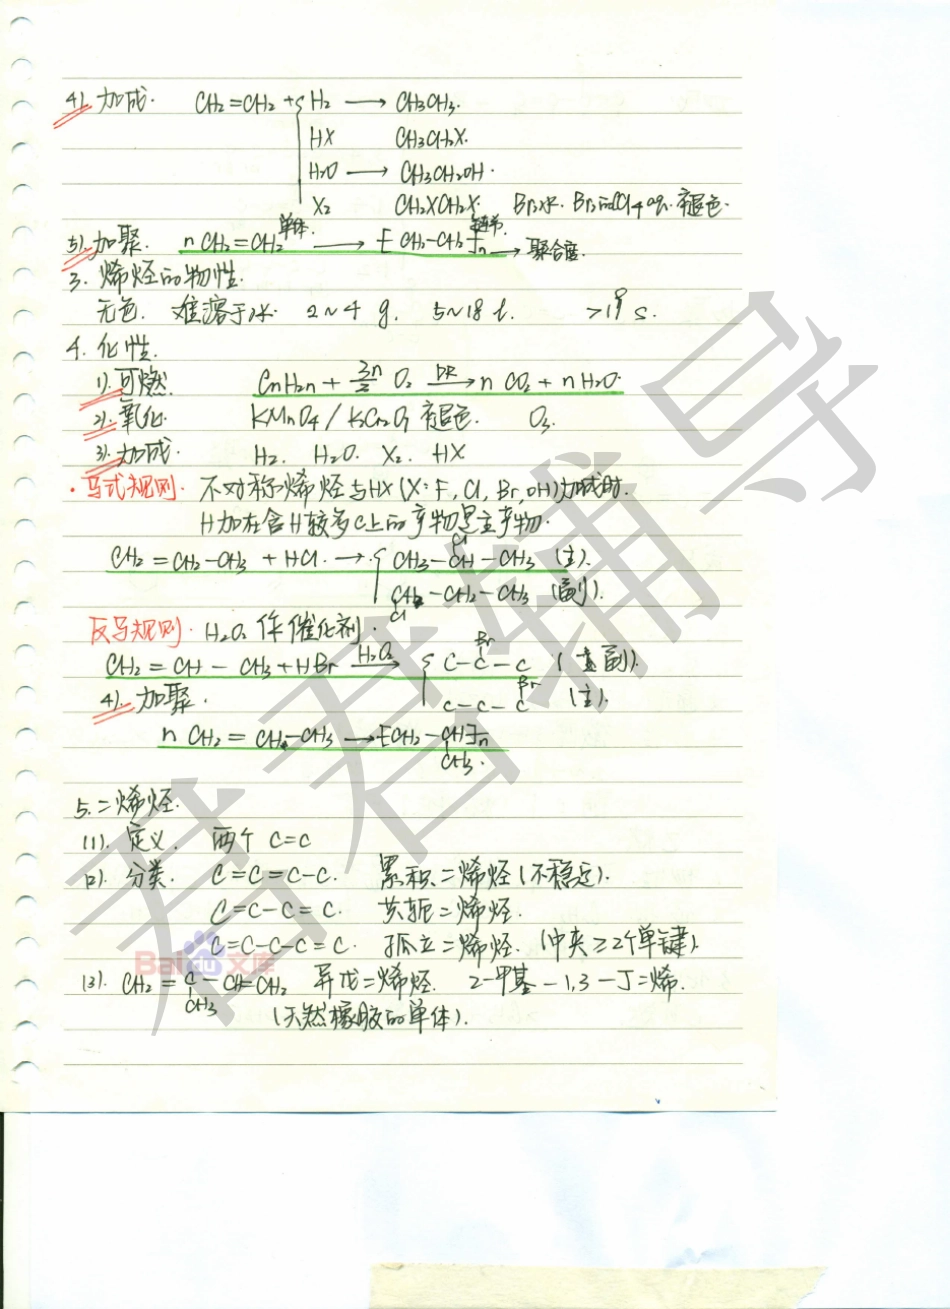 4). 加成. CH2=CH2 + { H2 → CH3CH3.
HX CH3CH2X.
H2O → CH3CH2OH.
X2 CH2XCH2X. Br2水. Br2的CCl4 aq. 褪色.
单体. 链节.
5). 加聚. nCH2=CH2 → [CH2-CH2]n → 聚合度.
3. 烯烃的物性.
无色. 难溶于水. 2~4 g. 5~18 l. >19 s.
4. 化性.
1). 可燃 CnH2n + 3n/2 O2 点燃→ n CO2 + n H2O.
2). 氧化. KMnO4 / K2Cr2O7 褪色. O3.
3). 加成. H2. H2O. X2. HX
· 马式规则. 不对称烯烃与HX(X: F, Cl, Br, OH)加成时.
H加在含H较多C上的产物是主产物.
Cl
CH2=CH2-CH3 + HCl. → { CH3-CH-CH3 (主).
CH2-CH2-CH3 (副).
Cl
反马规则. H2O2 作催化剂.
Br
CH2=CH-CH3+HBr H2O2→ { C-C-C (副).
Br
C-C-C (主).
4). 加聚.
n CH2=CH-CH3 → [CH2-CH]n
CH3.
5. 二烯烃.
(1). 定义. 两个 C=C
(2). 分类. C=C=C-C. 累积二烯烃(不稳定).
C=C-C=C. 共轭二烯烃.
C=C-C-C=C. 孤立二烯烃. (中夹≥2个单键).
Bai du 文库
(3). CH2=C-CH=CH2 异戊二烯烃. 2-甲基-1,3-丁二烯.
CH3
(天然橡胶的单体).
君君辅导